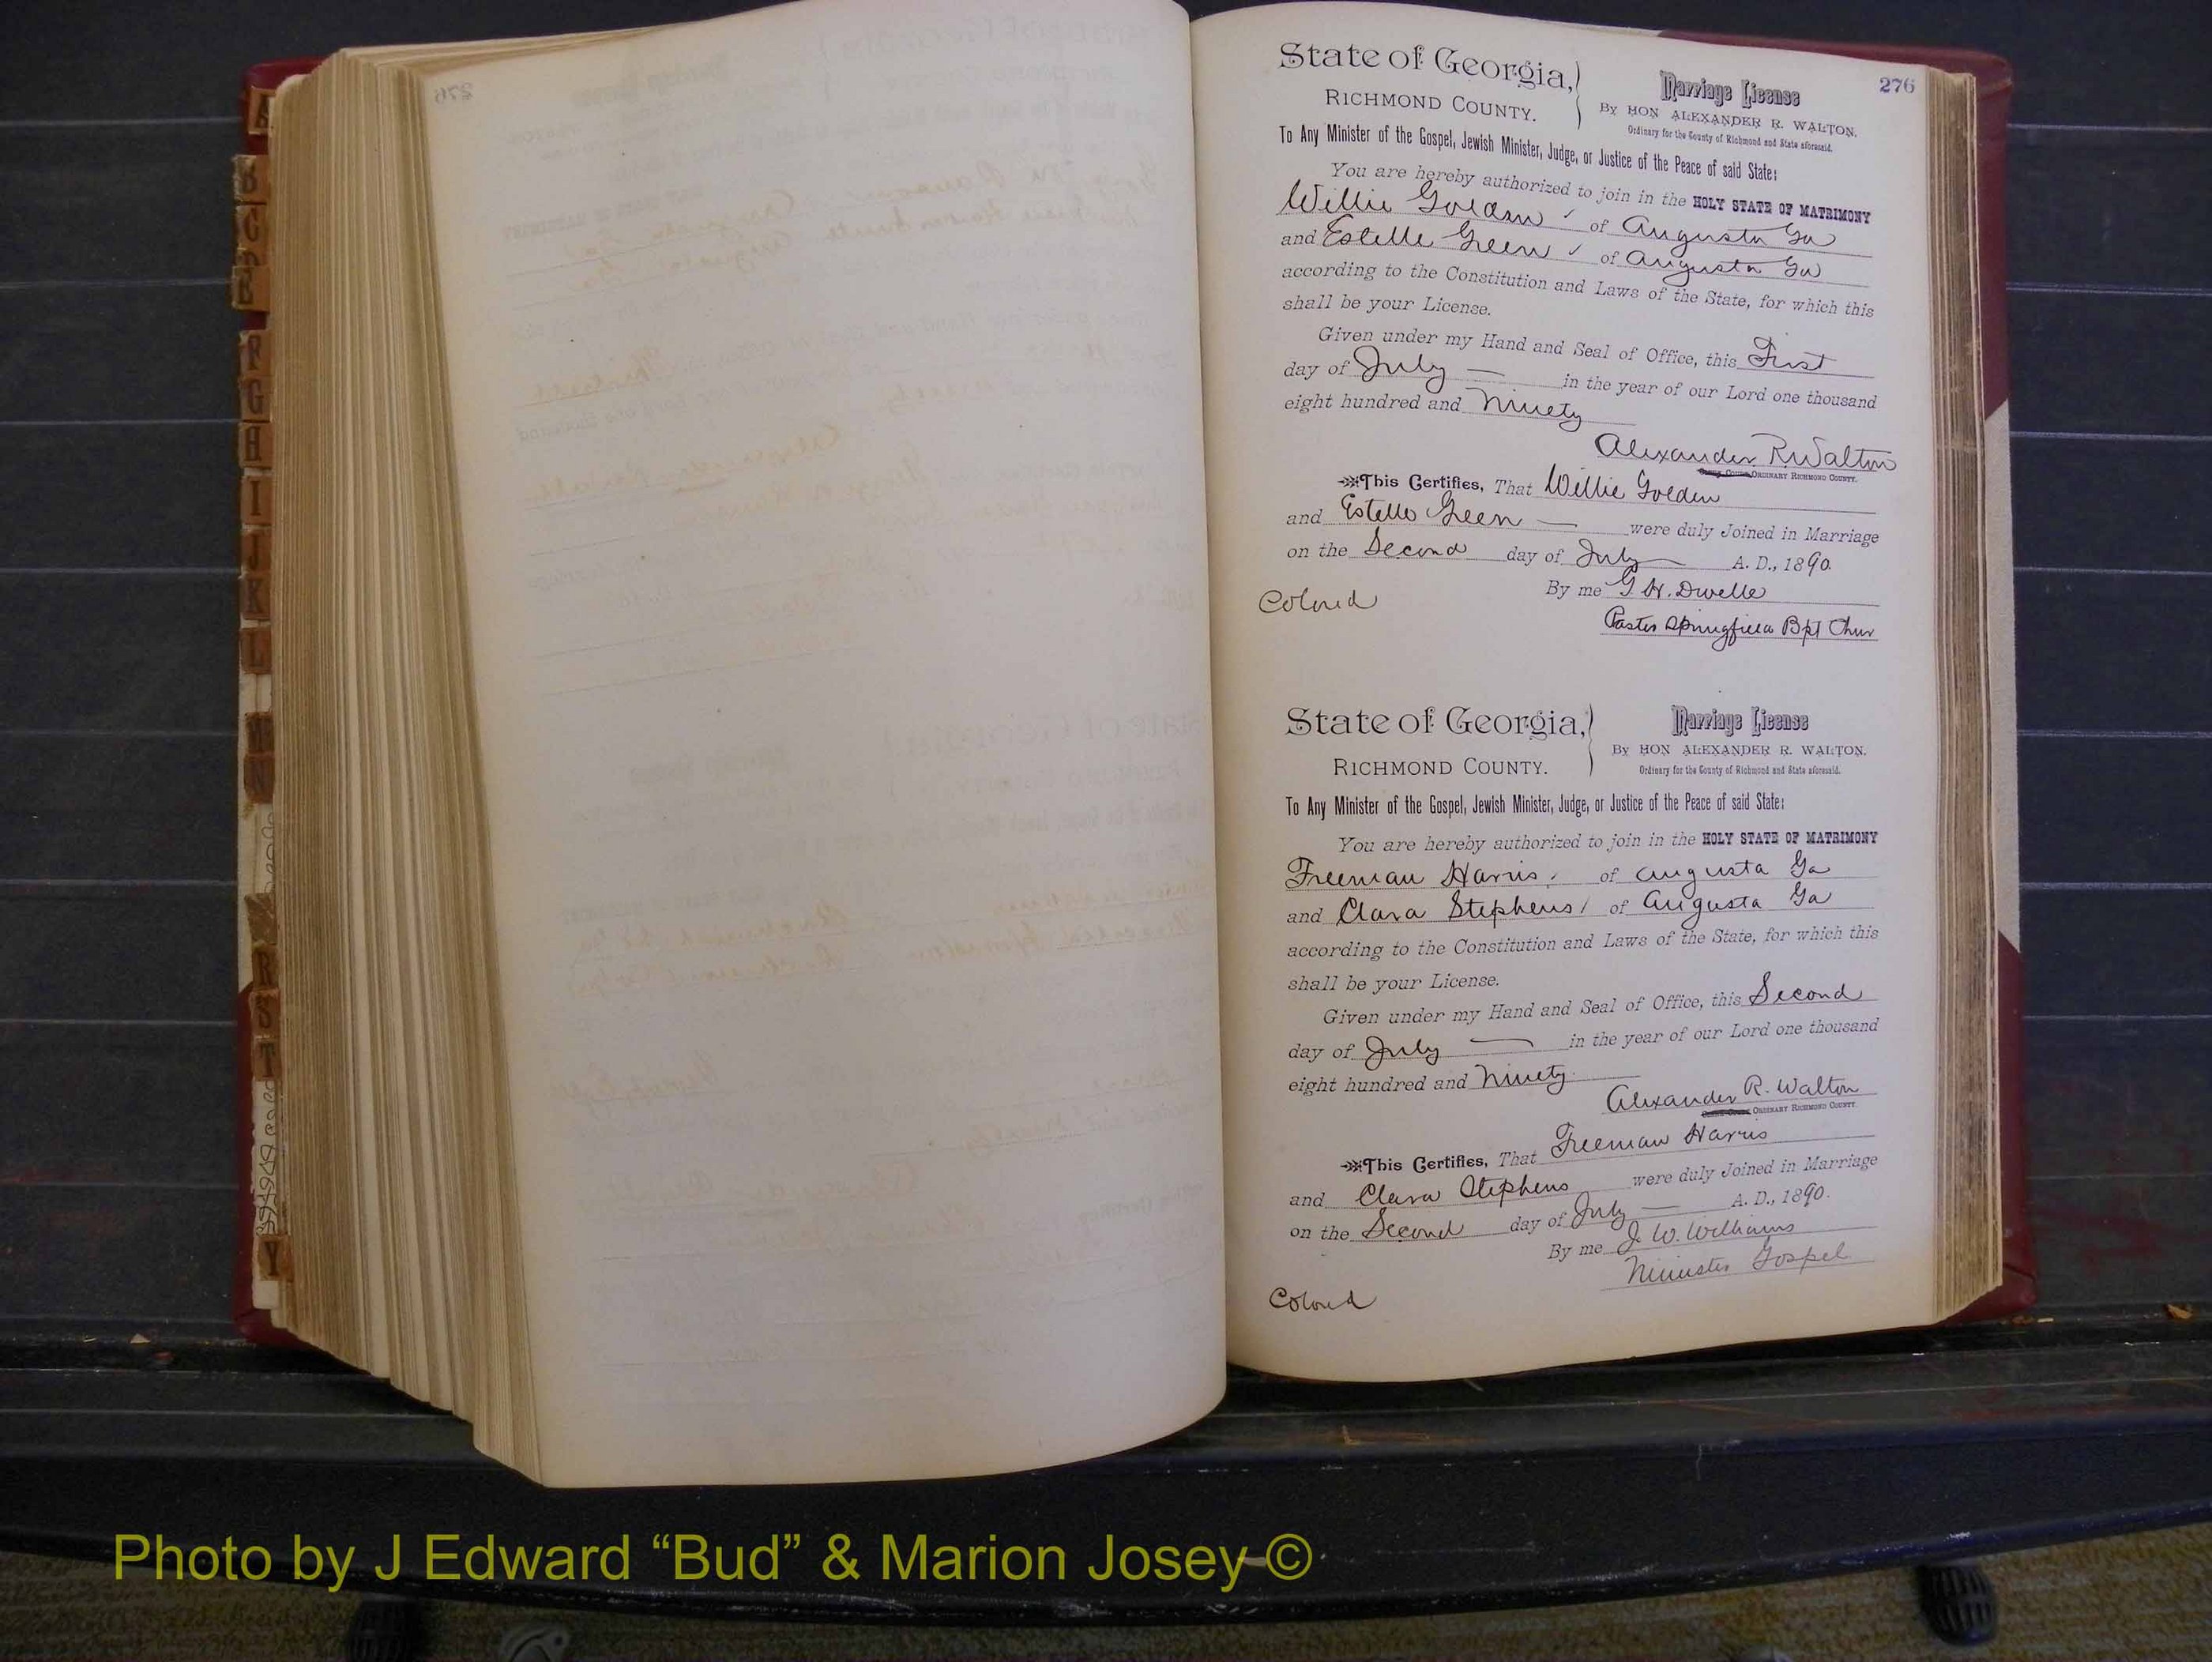 276
State of Georgia,
RICHMOND COUNTY.
Marriage License
By HON ALEXANDER R. WALTON,
Ordinary for the County of Richmond and State aforesaid.
To Any Minister of the Gospel, Jewish Minister, Judge, or Justice of the Peace of said State:
You are hereby authorized to join in the HOLY STATE OF MATRIMONY
Willie Golden of Augusta Ga
and Estelle Green of Augusta Ga
according to the Constitution and Laws of the State, for which this
shall be your License.
Given under my Hand and Seal of Office, this First
day of July — in the year of our Lord one thousand
eight hundred and Ninety
Alexander R. Walton
ORDINARY RICHMOND COUNTY.
This Certifies, That Willie Golden
and Estelle Green — were duly Joined in Marriage
on the Second day of July A. D., 1890.
By me G. W. Dwelle
Colored
Pastor Springfield Bpt Chur
State of Georgia,
RICHMOND COUNTY.
Marriage License
By HON ALEXANDER R. WALTON.
Ordinary for the County of Richmond and State aforesaid.
To Any Minister of the Gospel, Jewish Minister, Judge, or Justice of the Peace of said State:
You are hereby authorized to join in the HOLY STATE OF MATRIMONY
Freeman Harris of Augusta Ga
and Clara Stephens of Augusta Ga
according to the Constitution and Laws of the State, for which this
shall be your License.
Given under my Hand and Seal of Office, this Second
day of July — in the year of our Lord one thousand
eight hundred and Ninety
Alexander R. Walton
ORDINARY RICHMOND COUNTY.
This Certifies, That Freeman Harris
and Clara Stephens were duly Joined in Marriage
on the Second day of July — A. D., 1890.
By me J. W. Williams
Minister Gospel
Colored
B
C
F
G
H
I
J
K
L
M
N
R
S
T
Y
Photo by J Edward “Bud” & Marion Josey ©